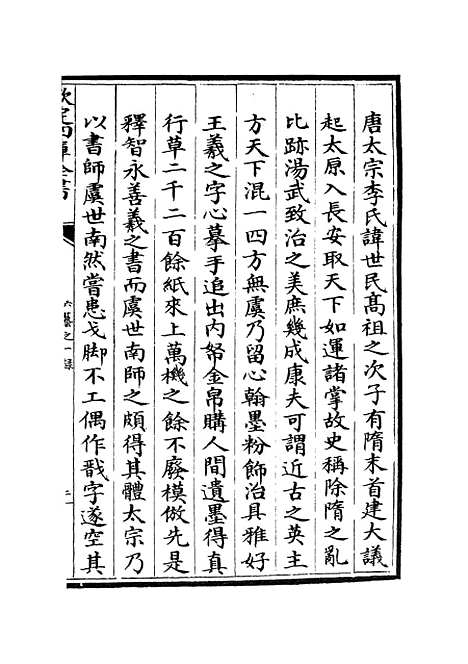 唐太宗李氏諱世民髙祖之次子有隋末首建大議
起太原入長安取天下如運諸掌故史稱除隋之亂
比跡湯武致治之美庶幾成康夫可謂近古之英主
方天下混一四方無虞乃留心翰墨粉飾治具雅好
王羲之字心摹手追出内帑金帛購人間遺墨得真
行草二千二百餘紙來上萬機之餘不廢模倣先是
釋智永善羲之書而虞世南師之頗得其體太宗乃
以書師虞世南然嘗患戈脚不工偶作戩字遂空其
欽定四庫全書
六藝之一録